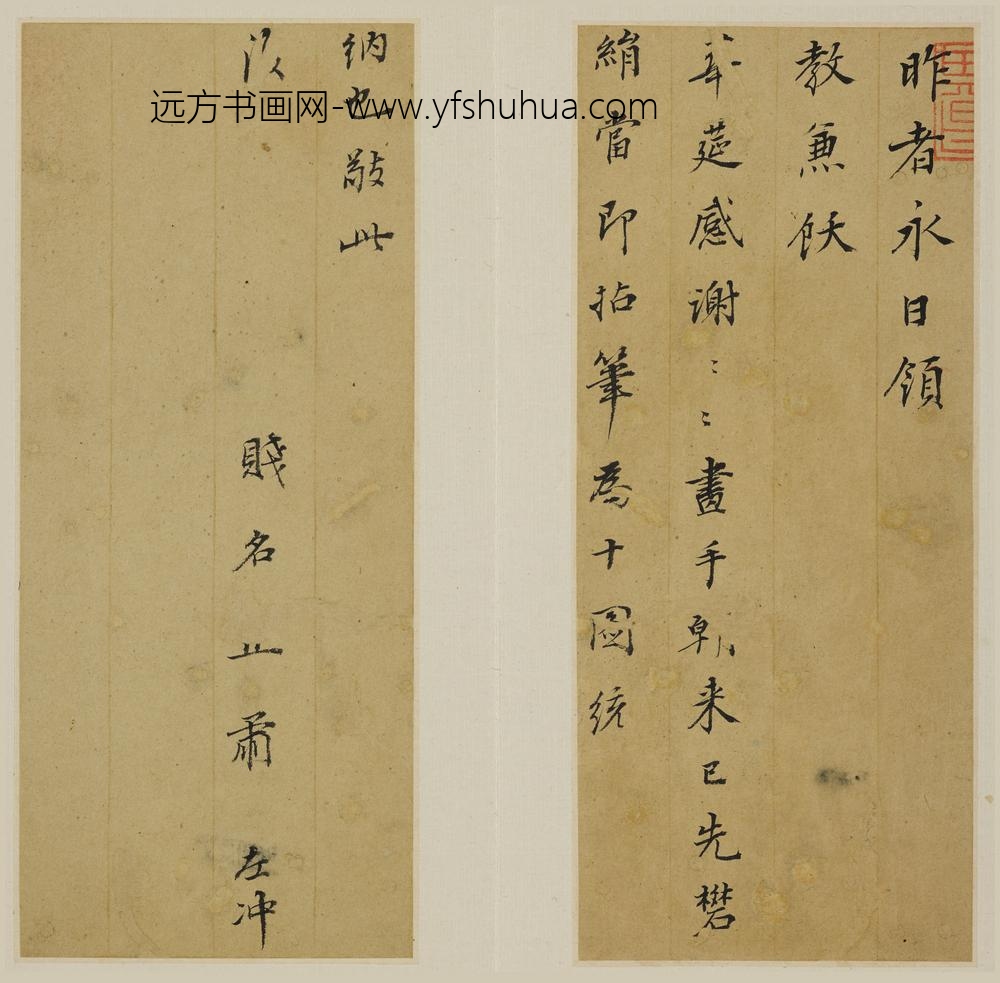 昨者永日領
教兼飫
華筵感謝〻〻畫手朝来已先礬
絹當即拈筆為十圖統
納也敬此
復 賤名肅 左冲
远方书画网-www.yfshuhua.com